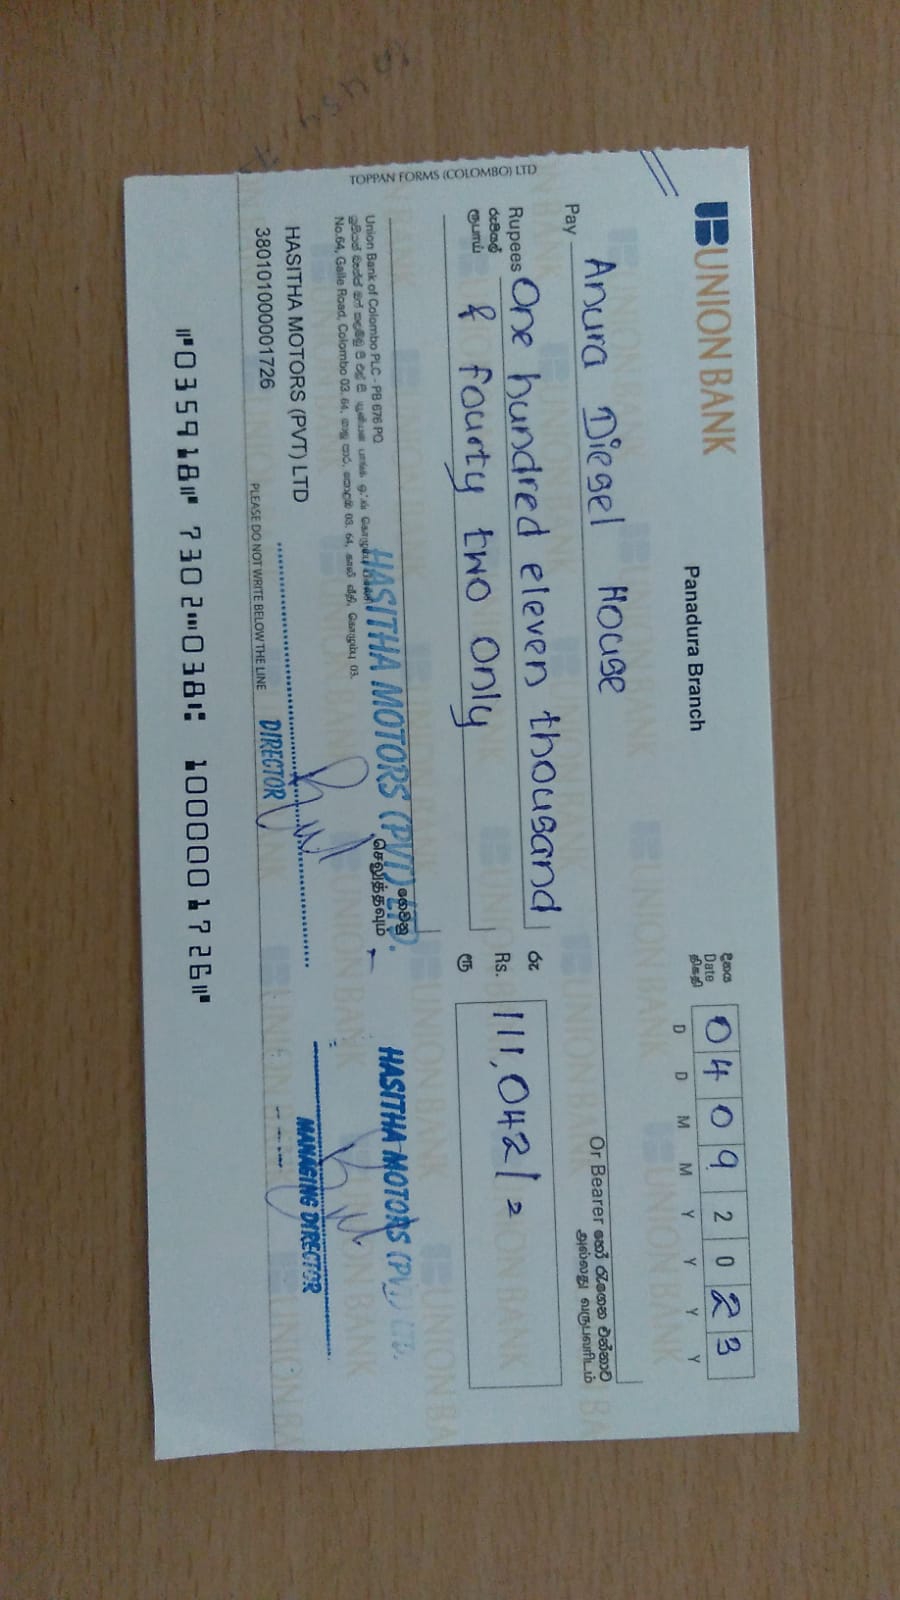 UNION BANK
Panadura Branch
දිනය
Date
திகதி
04 09 2023
D D M M Y Y Y Y
Pay Anura Diesel House
Or Bearer හෝ රැගෙන එන්නාට
அல்லது வருபவரிடம்
Rupees One hundred eleven thousand
රුපියල්
ரூபாய் & fourty two only
රු
Rs. 111,042/=
ரூ
ගෙවනු
செலுத்தவும்
TOPPAN FORMS (COLOMBO) LTD
Union Bank of Colombo PLC - PB 676 PQ
No.64, Galle Road, Colombo 03. 64, ගාලු පාර, කොළඹ 03. 64, காலி வீதி, கொழும்பு 03.
HASITHA MOTORS (PVT) LTD.
HASITHA MOTORS (PVT) LTD.
HASITHA MOTORS (PVT) LTD
380101000001726
DIRECTOR
MANAGING DIRECTOR
PLEASE DO NOT WRITE BELOW THE LINE
⑈035918⑈ 7302⑉038⑆ 1000001726⑈